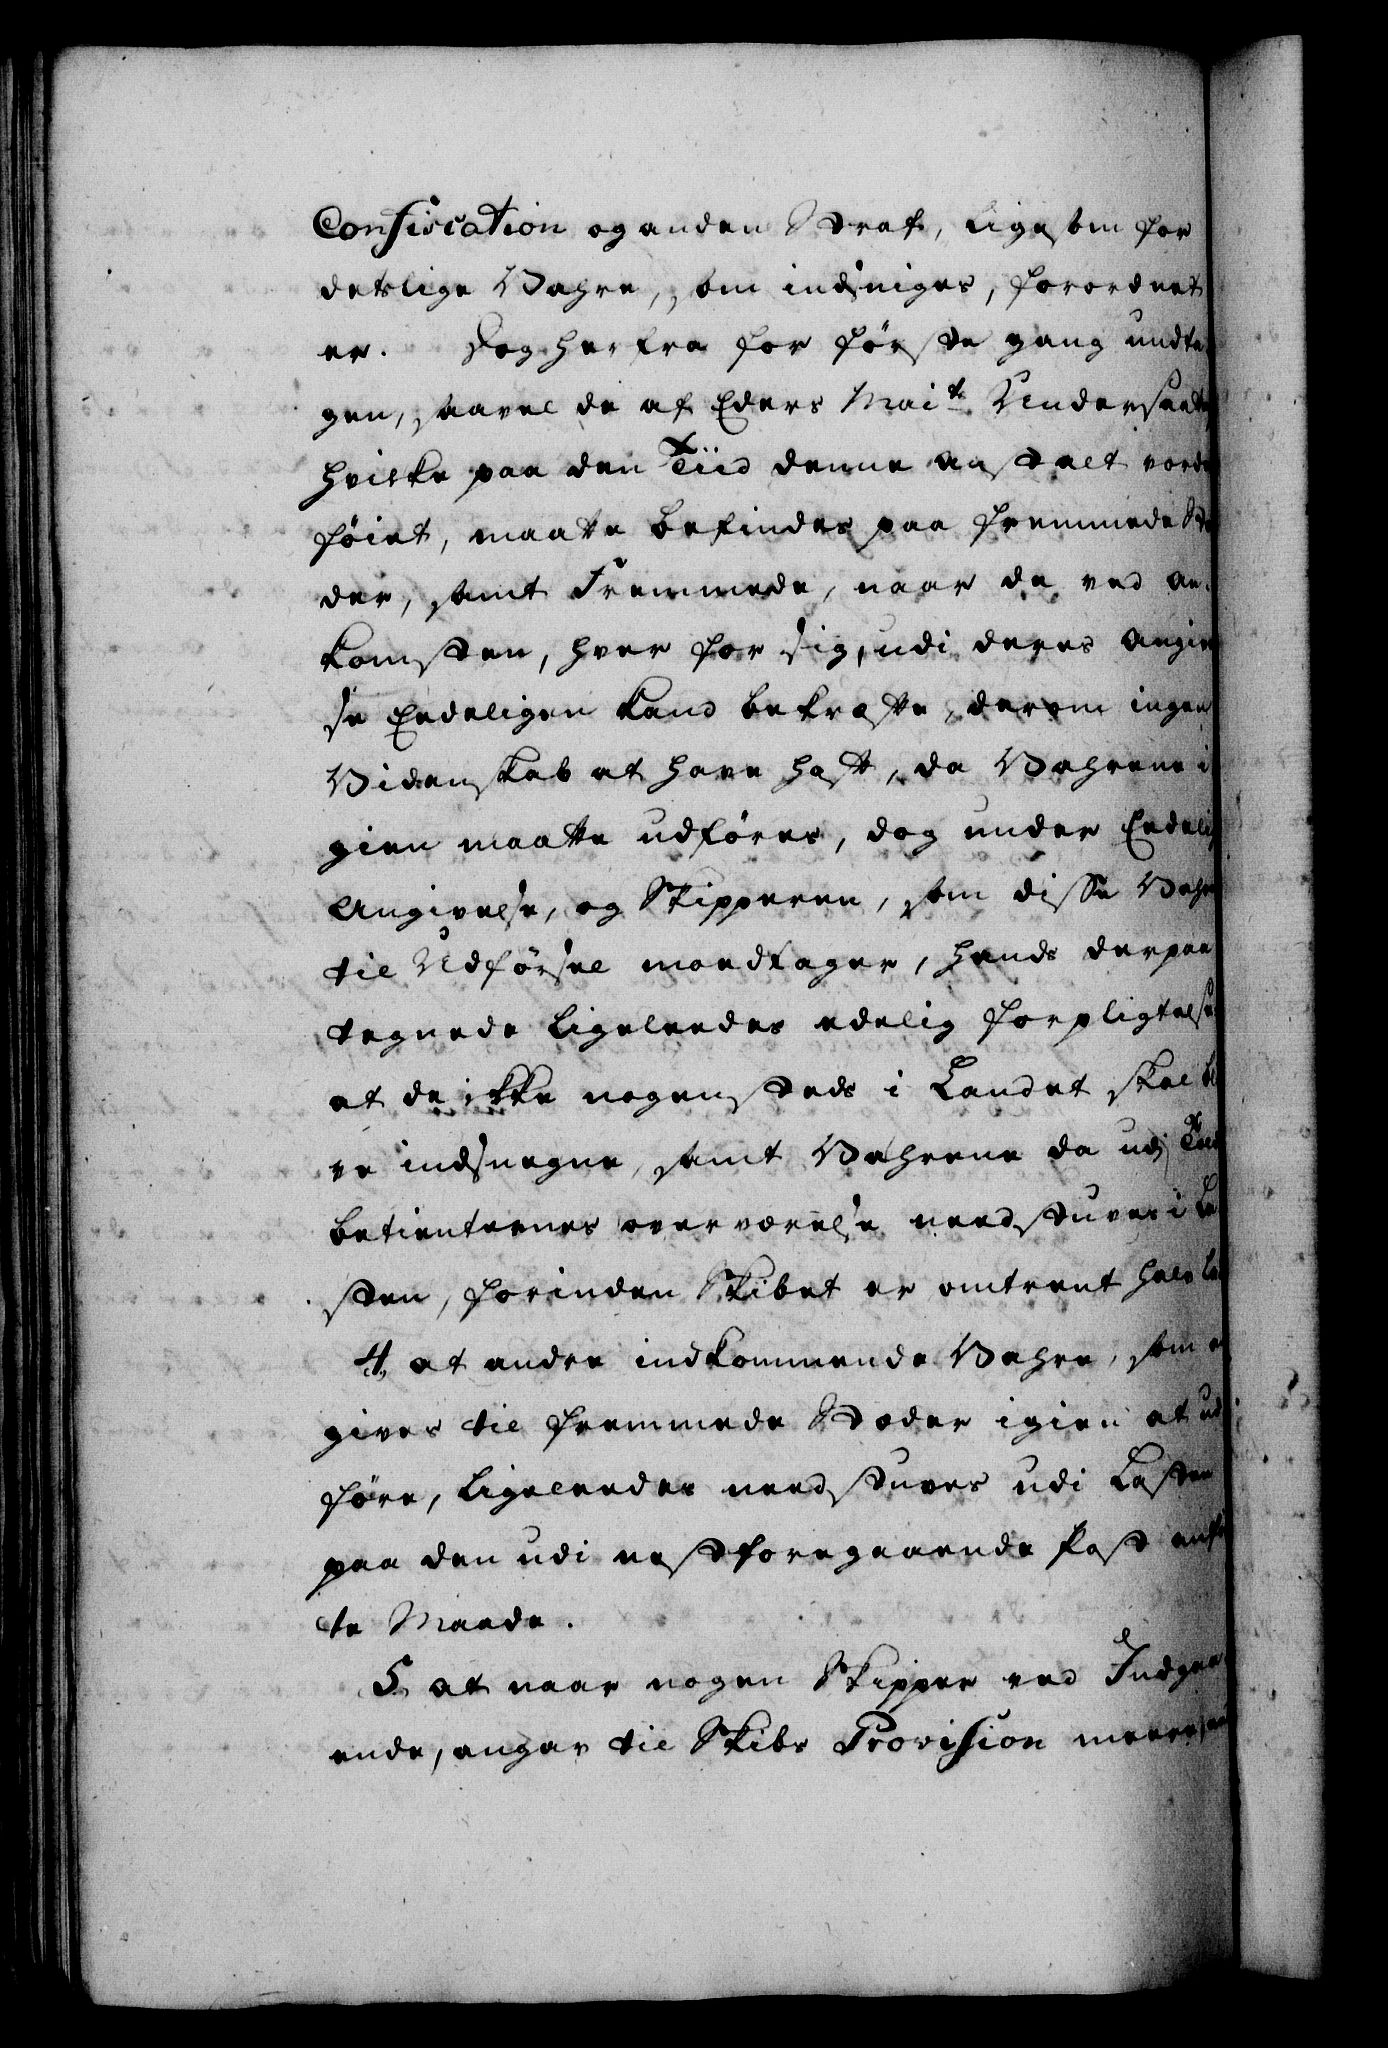 Confiscation og anden Straf, ligesom for
detslige Vahre, som indsniges, forordnet
er. Dog herfra for første gang undta¬
gen, saavel de af Eders Maits Undersaatter
hvilke paa den Tiid denne anstalt vorder
føiet, maatte befindes paa fremmede Stæ
der, samt Fremmede, naar de ved an¬
komsten, hver for sig, udi deres Angivel
se Eedeligen kand bekræfte, derom ingen
Videnskab at have haft, da Vahrene i
gien maatte udføres, dog under Eedelig
Angivelse, og Skipperen, som disse Vahre
til Udførsel modtager, hands derpaa
tegnede ligeleedes edelig forpligtelse
at de ikke nogensteds i Landet skal bli
ve indsnegne, samt Vahrene da udi Told
betienternes overværelse needstuves i La
sten, forinden Skibet er omtrent halv la
4, at andre indkommende Vahre, som an
gives til fremmede Stæder igien at ud
føre, ligeleedes needstuves udi Lasten
paa den udi næstforegaaende Post anfør
te Maade.
5, at naar nogen Skipper ved Indgaa
ende, angav til Skibs Provision meere, end